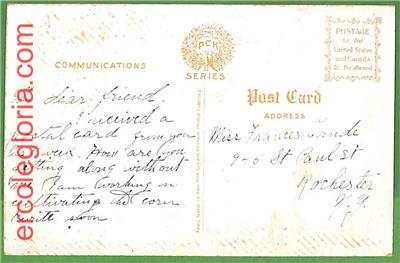 ecolegloria.com
COMMUNICATIONS
THE
PCK
SERIES
POSTAGE
to the
United States
and Canada
1c. for abroad
Post Card
ADDRESS
Dear friend
I received a
postal card from you
week. How are you
getting along without
me I am working in
cultivating the corn
write soon
Miss Frances
940 St Paul St
Rochester
N.Y.